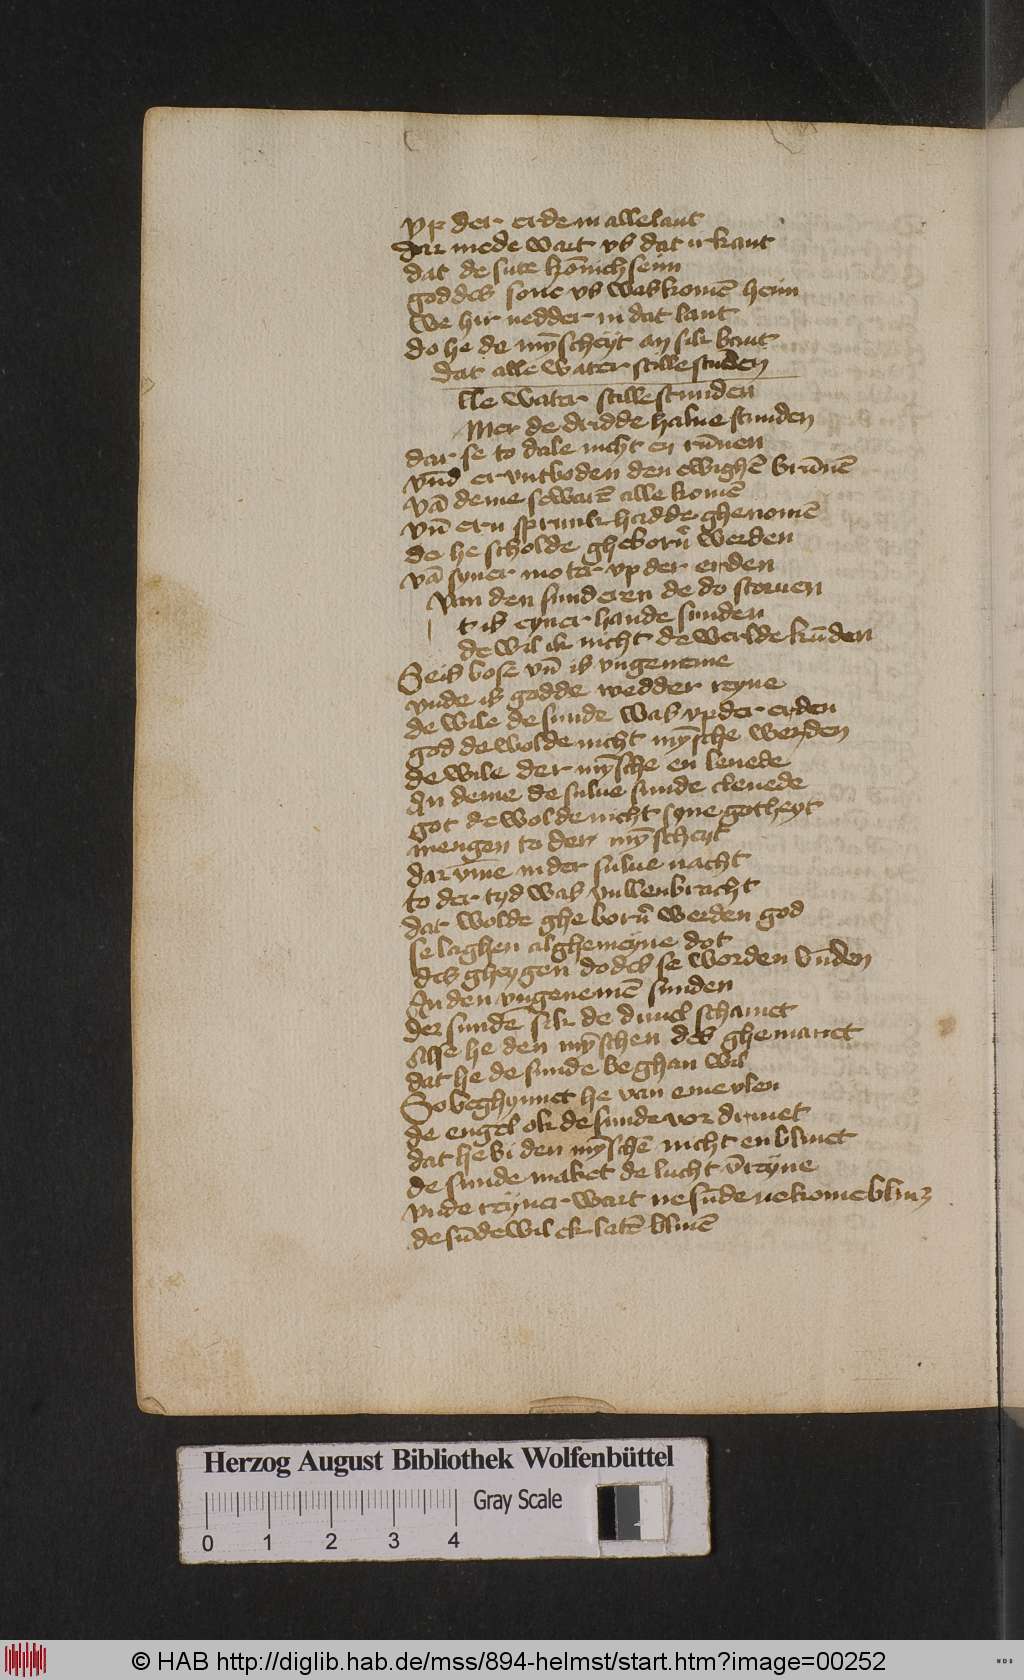 vp der erde in alle lant
Dar mede wart vs dat irkant
dat de sute konich sein
goddes sone vs was komē hein
we hir nedder in dat lant
do he de mȳscheyt an sik bant
dat alle water stille studen
lle water stille stunden
Mer de dridde halue stunden
dar se to dale nicht en rūnen
vn̄d er vntboden den ewighē brūnē
vā deme se warē alle komē
vn̄ ern sprunk hadde ghenomē
do he scholde gheborn̄ werden
vā syner moter vp der erden
van den sunderen de do storuen
t is eyner hande sunden
de wil ik nicht de werlde kūden
Se is bose vn̄ is vngeneme
vnde is godde wedder reyne
de wile de sunde was vp der erden
god de wolde nicht mȳsche werden
de wile der mȳsche en leuede
An deme de sulue sunde cleuede
got de wolde nicht syne gotheyt
mengen to der mȳscheyt
dar vm̄e in der sulue nacht
to der tyd was vullenbracht
dat wolde ghe born̄ werden god
se laghen alghemeyne dot
des gheygen dodes se worden vūden
An den vngenemē sunden
der sundē sik de duuel schamet
Alse he den mȳschen des ghemanet
dat he de sunde beghan wil
So beghynnet he van eme ylen
de engel ok de sunde vor driuet
dat he bi den mȳschē nicht en bliuet
de sunde maket de lucht v̄reyne
vnde reyner wart ne sūde ne kome
de sūde wil ek latē bliuē
Herzog August Bibliothek Wolfenbüttel
Gray Scale
0 1 2 3 4
© HAB http://diglib.hab.de/mss/894-helmst/start.htm?image=00252